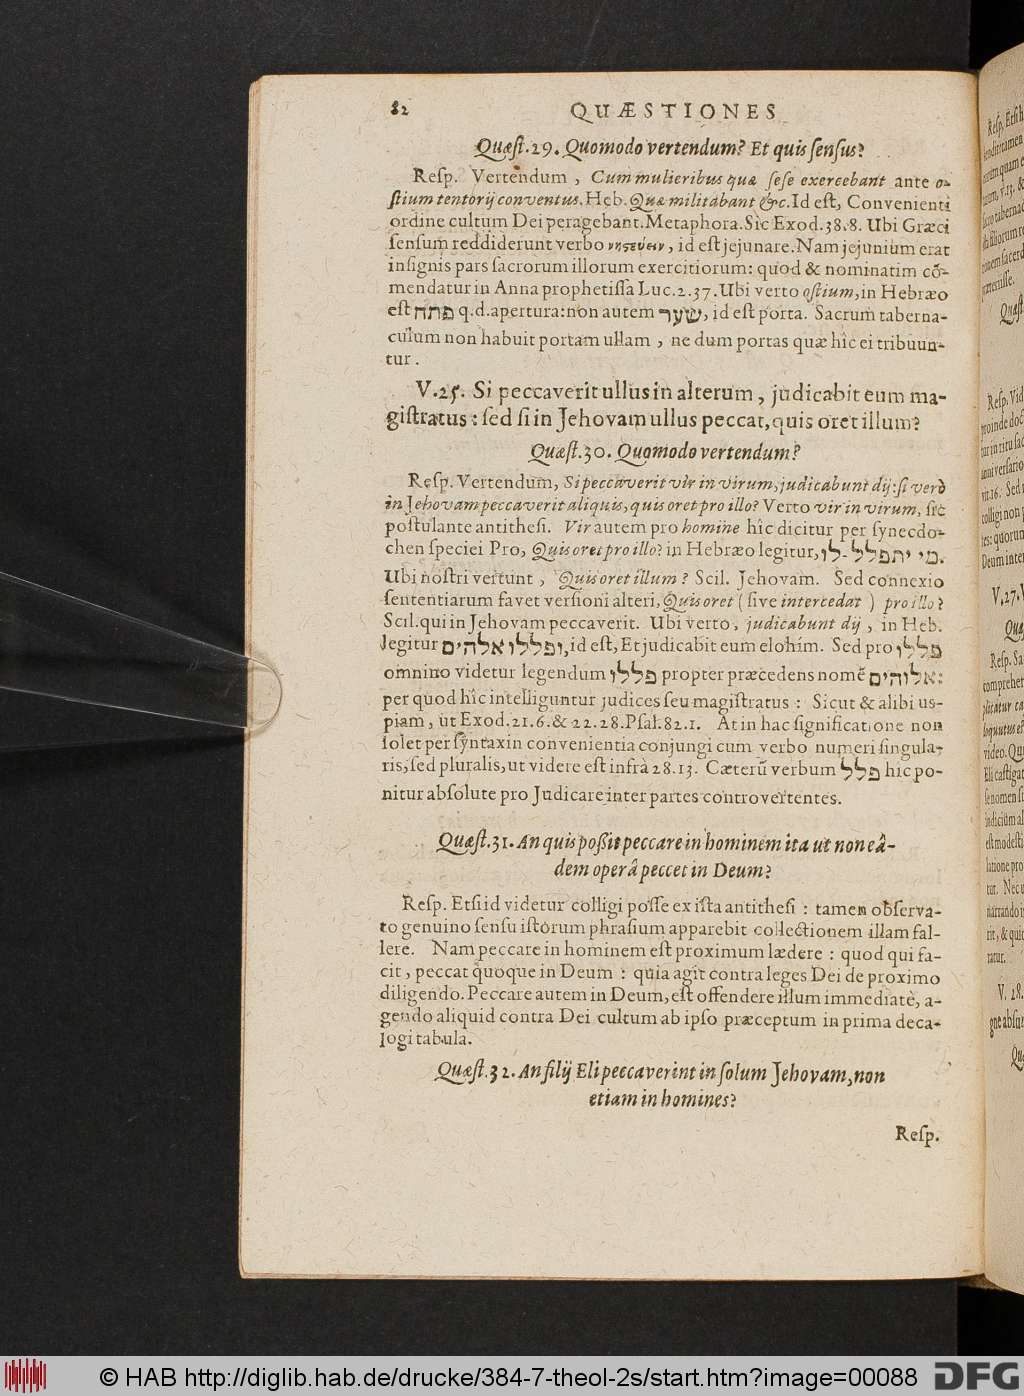 82 QUÆSTIONES
Quæſt.29. Quomodo vertendum? Et quis ſenſus?
Reſp. Vertendum, Cum mulieribus quæ ſeſe exercebant ante o-
ſtium tentorij conventus. Heb. Quæ militabant &c. Id eſt, Convenienti
ordine cultum Dei peragebant. Metaphora. Sic Exod. 38.8. Ubi Græci
ſenſum reddiderunt verbo νηςεύειν, id eſt jejunare. Nam jejunium erat
inſignis pars ſacrorum illorum exercitiorum: quod & nominatim cō-
mendatur in Anna prophetiſſa Luc. 2. 37. Ubi verto oſtium, in Hebræo
eſt פתח q.d. apertura: non autem שער, id eſt porta. Sacrum taberna-
culum non habuit portam ullam, ne dum portas quæ hîc ei tribuun-
tur.
V.25. Si peccaverit ullus in alterum, judicabit eum ma-
giſtratus: ſed ſi in Jehovam ullus peccat, quis oret illum?
Quæſt.30. Quomodo vertendum?
Reſp. Vertendum, Si peccaverit vir in virum, judicabunt dij: ſi verò
in Jehovam peccaverit aliquis, quis oret pro illo? Verto vir in virum, ſic
poſtulante antitheſi. Vir autem pro homine hîc dicitur per ſynecdo-
chen ſpeciei Pro, Quis oret pro illo? in Hebræo legitur, מי יתפלל־לו.
Ubi noſtri vertunt, Quis oret illum? Scil. Jehovam. Sed connexio
ſententiarum favet verſioni alteri, Quis oret (ſive intercedat) pro illo?
Scil. qui in Jehovam peccaverit. Ubi verto, judicabunt dij, in Heb.
legitur ופללו אלהים, id eſt, Et judicabit eum elohim. Sed pro פללו
omnino videtur legendum פללו propter præcedens nomē אלוהים:
per quod hîc intelliguntur judices ſeu magiſtratus: Sicut & alibi uſ-
piam, ut Exod. 21.6. & 22.28. Pſal. 82.1. At in hac ſignificatione non
ſolet per ſyntaxin convenientia conjungi cum verbo numeri ſingula-
ris, ſed pluralis, ut videre eſt infrà 28.13. Cæterū verbum פלל hic po-
nitur abſolute pro Judicare inter partes controvertentes.
Quæſt.31. An quis poßit peccare in hominem ita ut non eâ-
dem operâ peccet in Deum?
Reſp. Etſi id videtur colligi poſſe ex iſta antitheſi: tamen obſerva-
to genuino ſenſu iſtorum phraſium apparebit collectionem illam fal-
lere. Nam peccare in hominem eſt proximum lædere: quod qui fa-
cit, peccat quoque in Deum: quia agit contra leges Dei de proximo
diligendo. Peccare autem in Deum, eſt offendere illum immediatè, a-
gendo aliquid contra Dei cultum ab ipſo præceptum in prima deca-
logi tabula.
Quæſt.32. An filij Eli peccaverint in ſolum Jehovam, non
etiam in homines?
Reſp.
© HAB http://diglib.hab.de/drucke/384-7-theol-2s/start.htm?image=00088
DFG